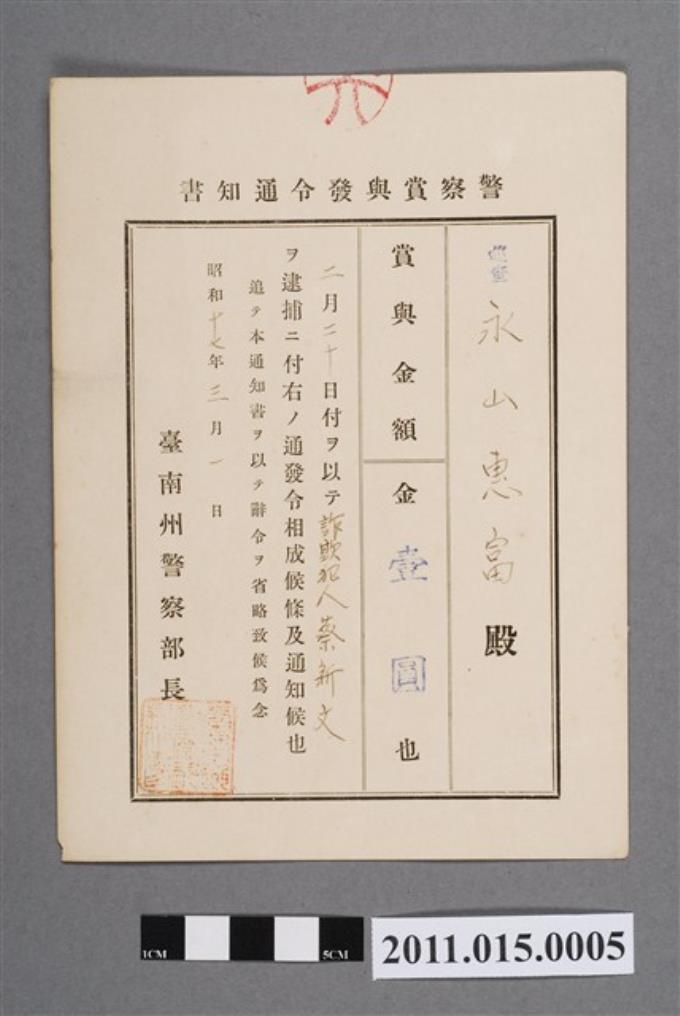 警察賞與發令通知書
永山惠富殿
賞與金額
金壹圓也
二月二十日付ヲ以テ詐欺犯人蔡新文
ヲ逮捕ニ付右ノ通發令相成候條及通知候也
追テ本通知書ヲ以テ辭令ヲ省略致候爲念
昭和十七年三月一日
臺南州警察部長
1CM
5CM
2011.015.0005